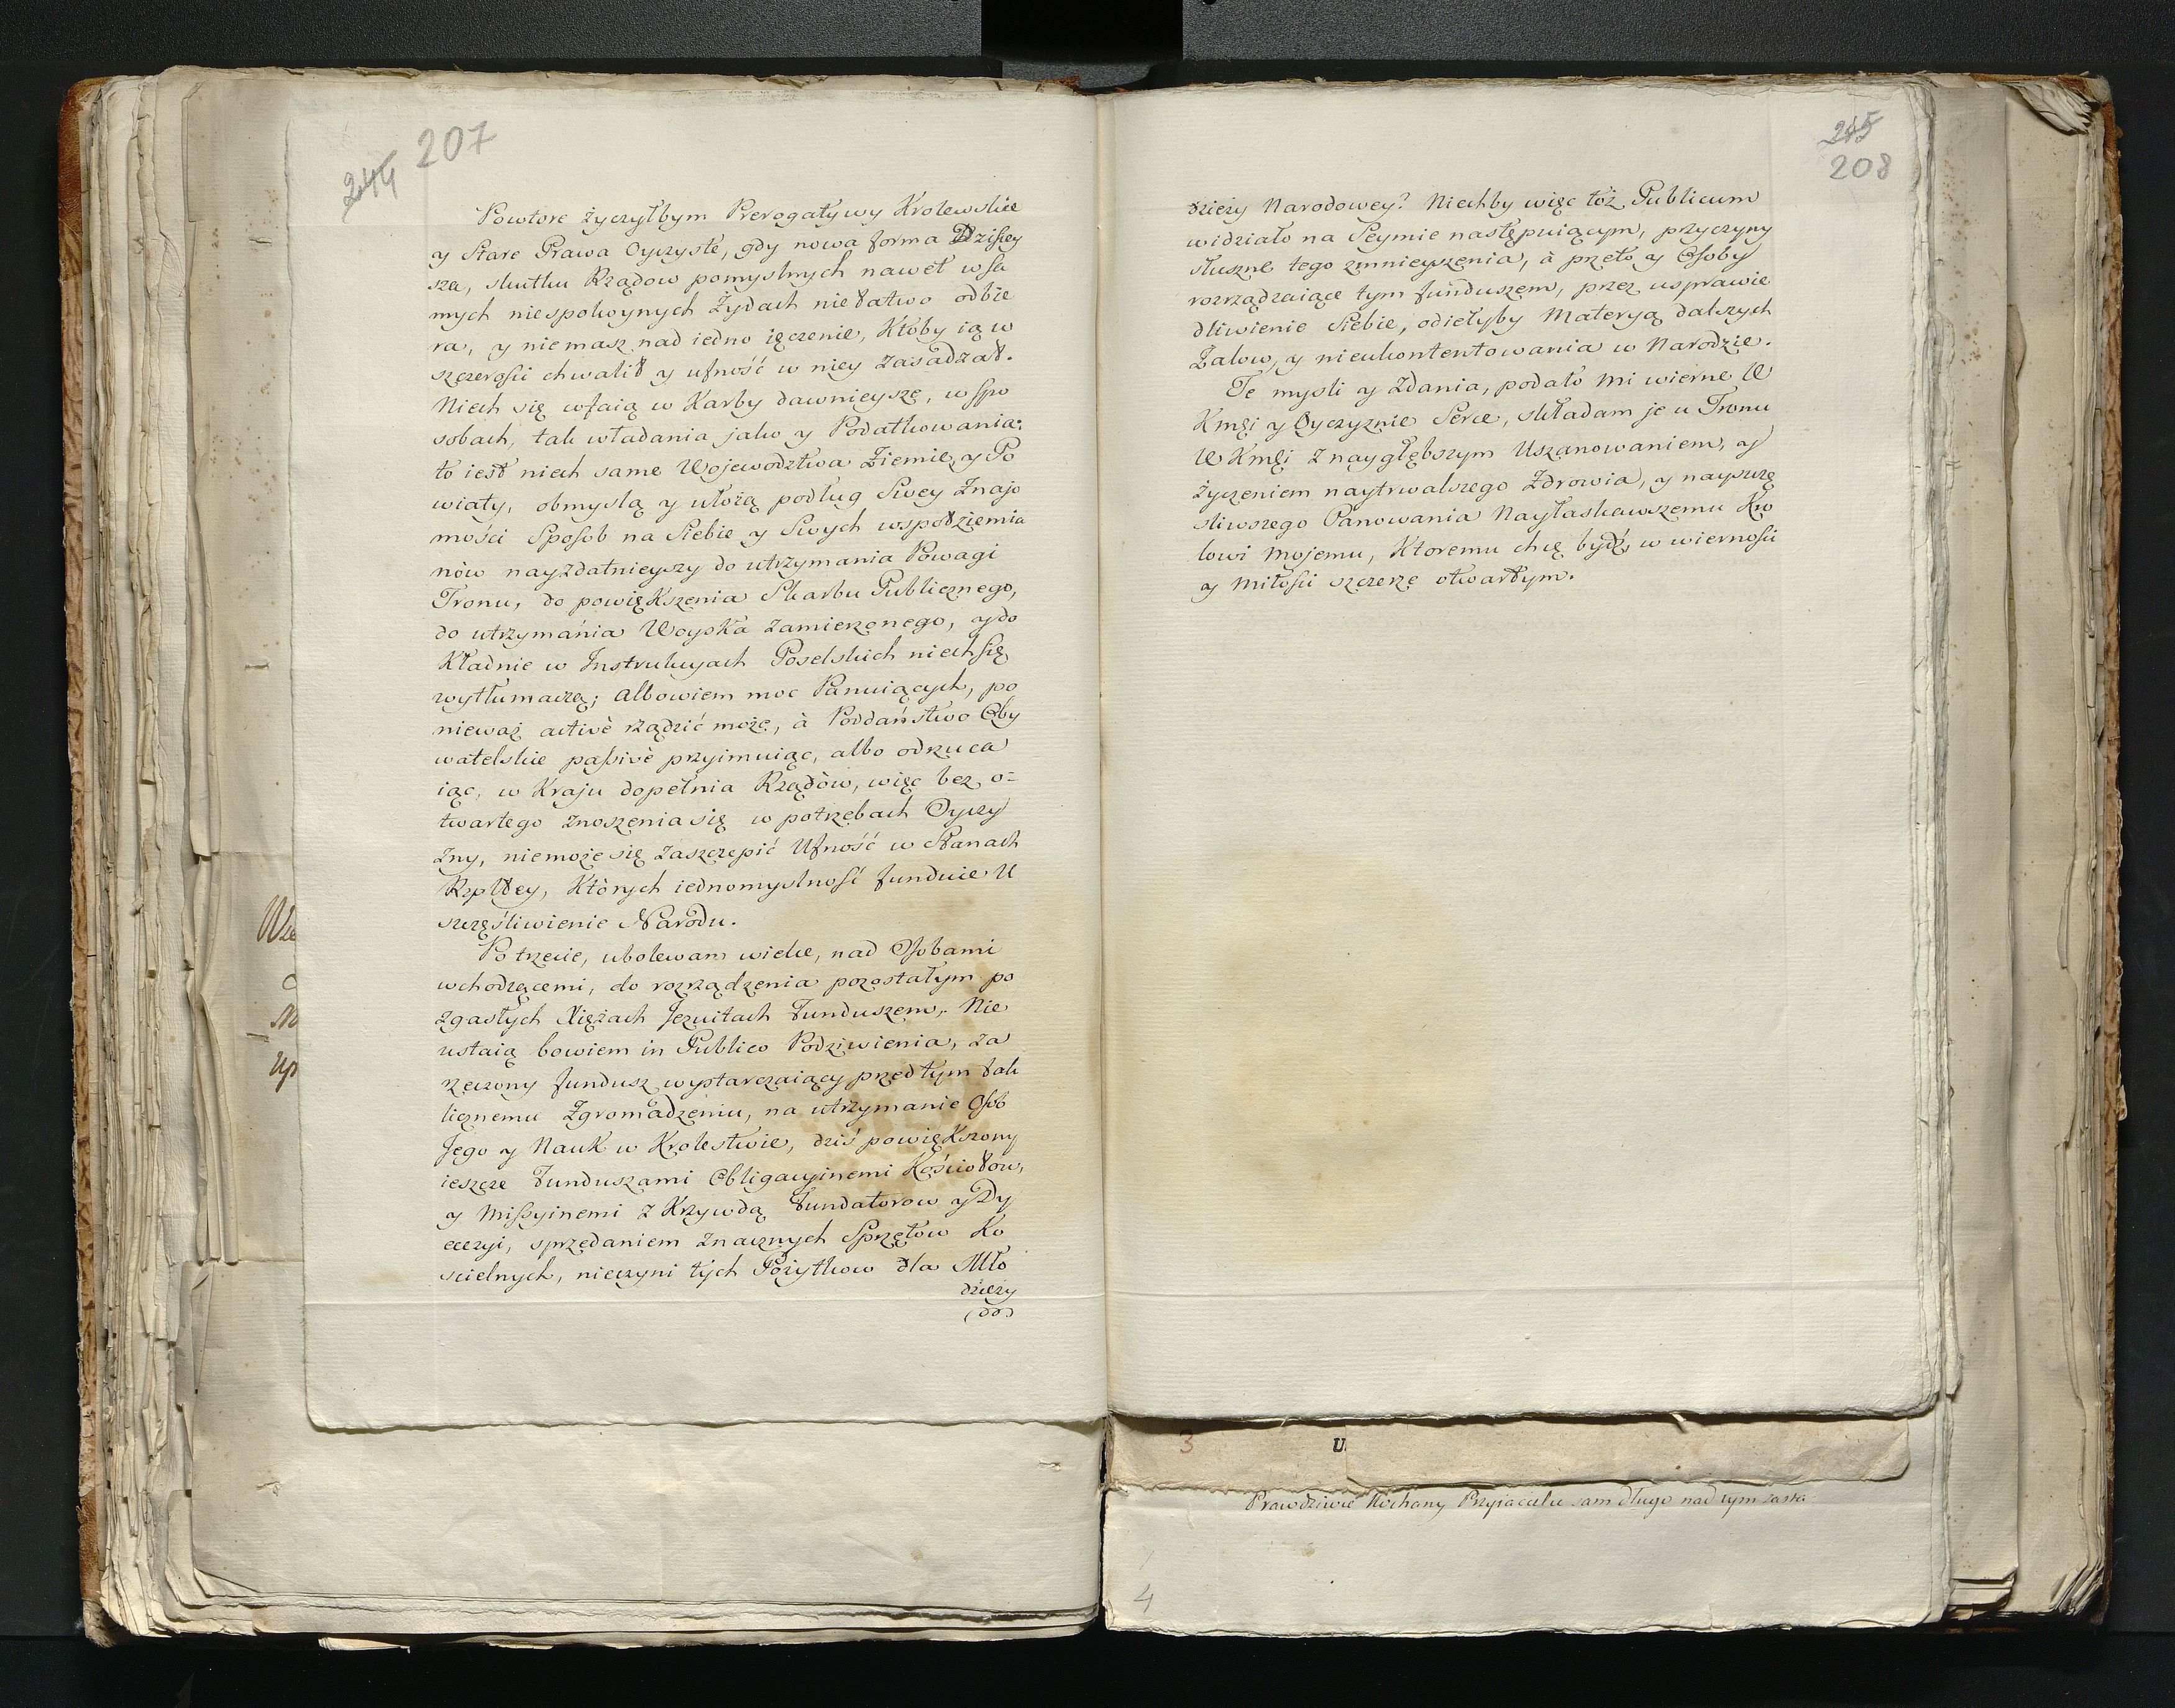 207
244
Powtore życzyłbym Prerogatywy Krolewskie
y Stare Prawa Oyczyste, gdy nowa forma Dzisiey
sza, skutku Rządow pomyslnych nawet w sa
mych niespokoynych Żydach nie łatwo odbie
ra, y nie masz nad iedno ięczenie, Ktoby ią w
szczerosci chwalił y ufność w niey zasadzał.
Niech się wfaią w Karby dawnieysze, w spo
sobach, tak władania jako y Podatkowania:
to iest niech same Wojewodztwa Ziemie y Po
wiaty, obmyslą y ułożą podług Swey Znajo
mości Sposob na Siebie y Swych wspołziemia
nòw nayzdatnieyszy do utrzymania Powagi
Tronu, do powięKszenia Skarbu Publicznego,
do utrzymania Woyska zamierzonego, y do
Kładnie w Instrukcyach Poselskich niech się
wytłumaczą; albowiem moc Panuiących, po
nieważ activè rządzić może, à Poddaństwo Oby
watelskie passivè przyimuiąc, albo odrzuca
iąc, w Kraju dopełnia Rządòw, więc bez o=
twartego znoszenia się w potrzebach Oyczy
zny, nie może się zaszczepić Ufność w Stanach
Rzpltey, Ktòrych iednomyslność funduie U
szczęśliwienie Narodu.
Po trzecie, ubolewam wielce, nad Osobami
wchodzącemi, do rozrządzenia pozostałym po
zgasłych Xiężach Jezuitach funduszem. Nie
ustaią bowiem in Publico Podziwienia, za
rzeczony fundusz wystarczaiący przed tym tak
licznemu Zgromadzeniu, na utrzymanie Osob
Jego y Nauk w Krolestwie, dziś powięKszony
ieszcze funduszami Obligacyinemi Kościołow,
y Missyinemi z Krzywdą fundatorow y Dy
ecezyi, sprzedaniem znacznych Sprzętow Ko
scielnych, nieczyni tych Pożytkow dla Mło
dzieży
245
208
dzieży Narodowey? Niechby więc tòż Publicum
widziało na Seymie następuiącym, przyczyny
słuszne tego zmnieyszenia, à przeto y Osoby
rozrządzaiące tym funduszem, przez usprawie
dliwienie Siebie, odiełyby Materyą dalszych
Żalow, y nieukontentowania w Narodzie.
Te mysli y Zdania, podało mi wierne W
Kmęi y Oyczyznie Serce, składam je u Tronu
W Kmęi z naygłębszym Uszanowaniem, y
życzeniem naytrwalszego Zdrowia, y nayszczę
sliwszego Panowania Nayłaskawszemu Kro
lowi mojemu, Ktoremu chcę bydź w wiernosci
y miłości szczerze otwartym.
3
U
Prawdziwie Kochany Przyiacielu sam długo nad tym zasta
4
Wze
No